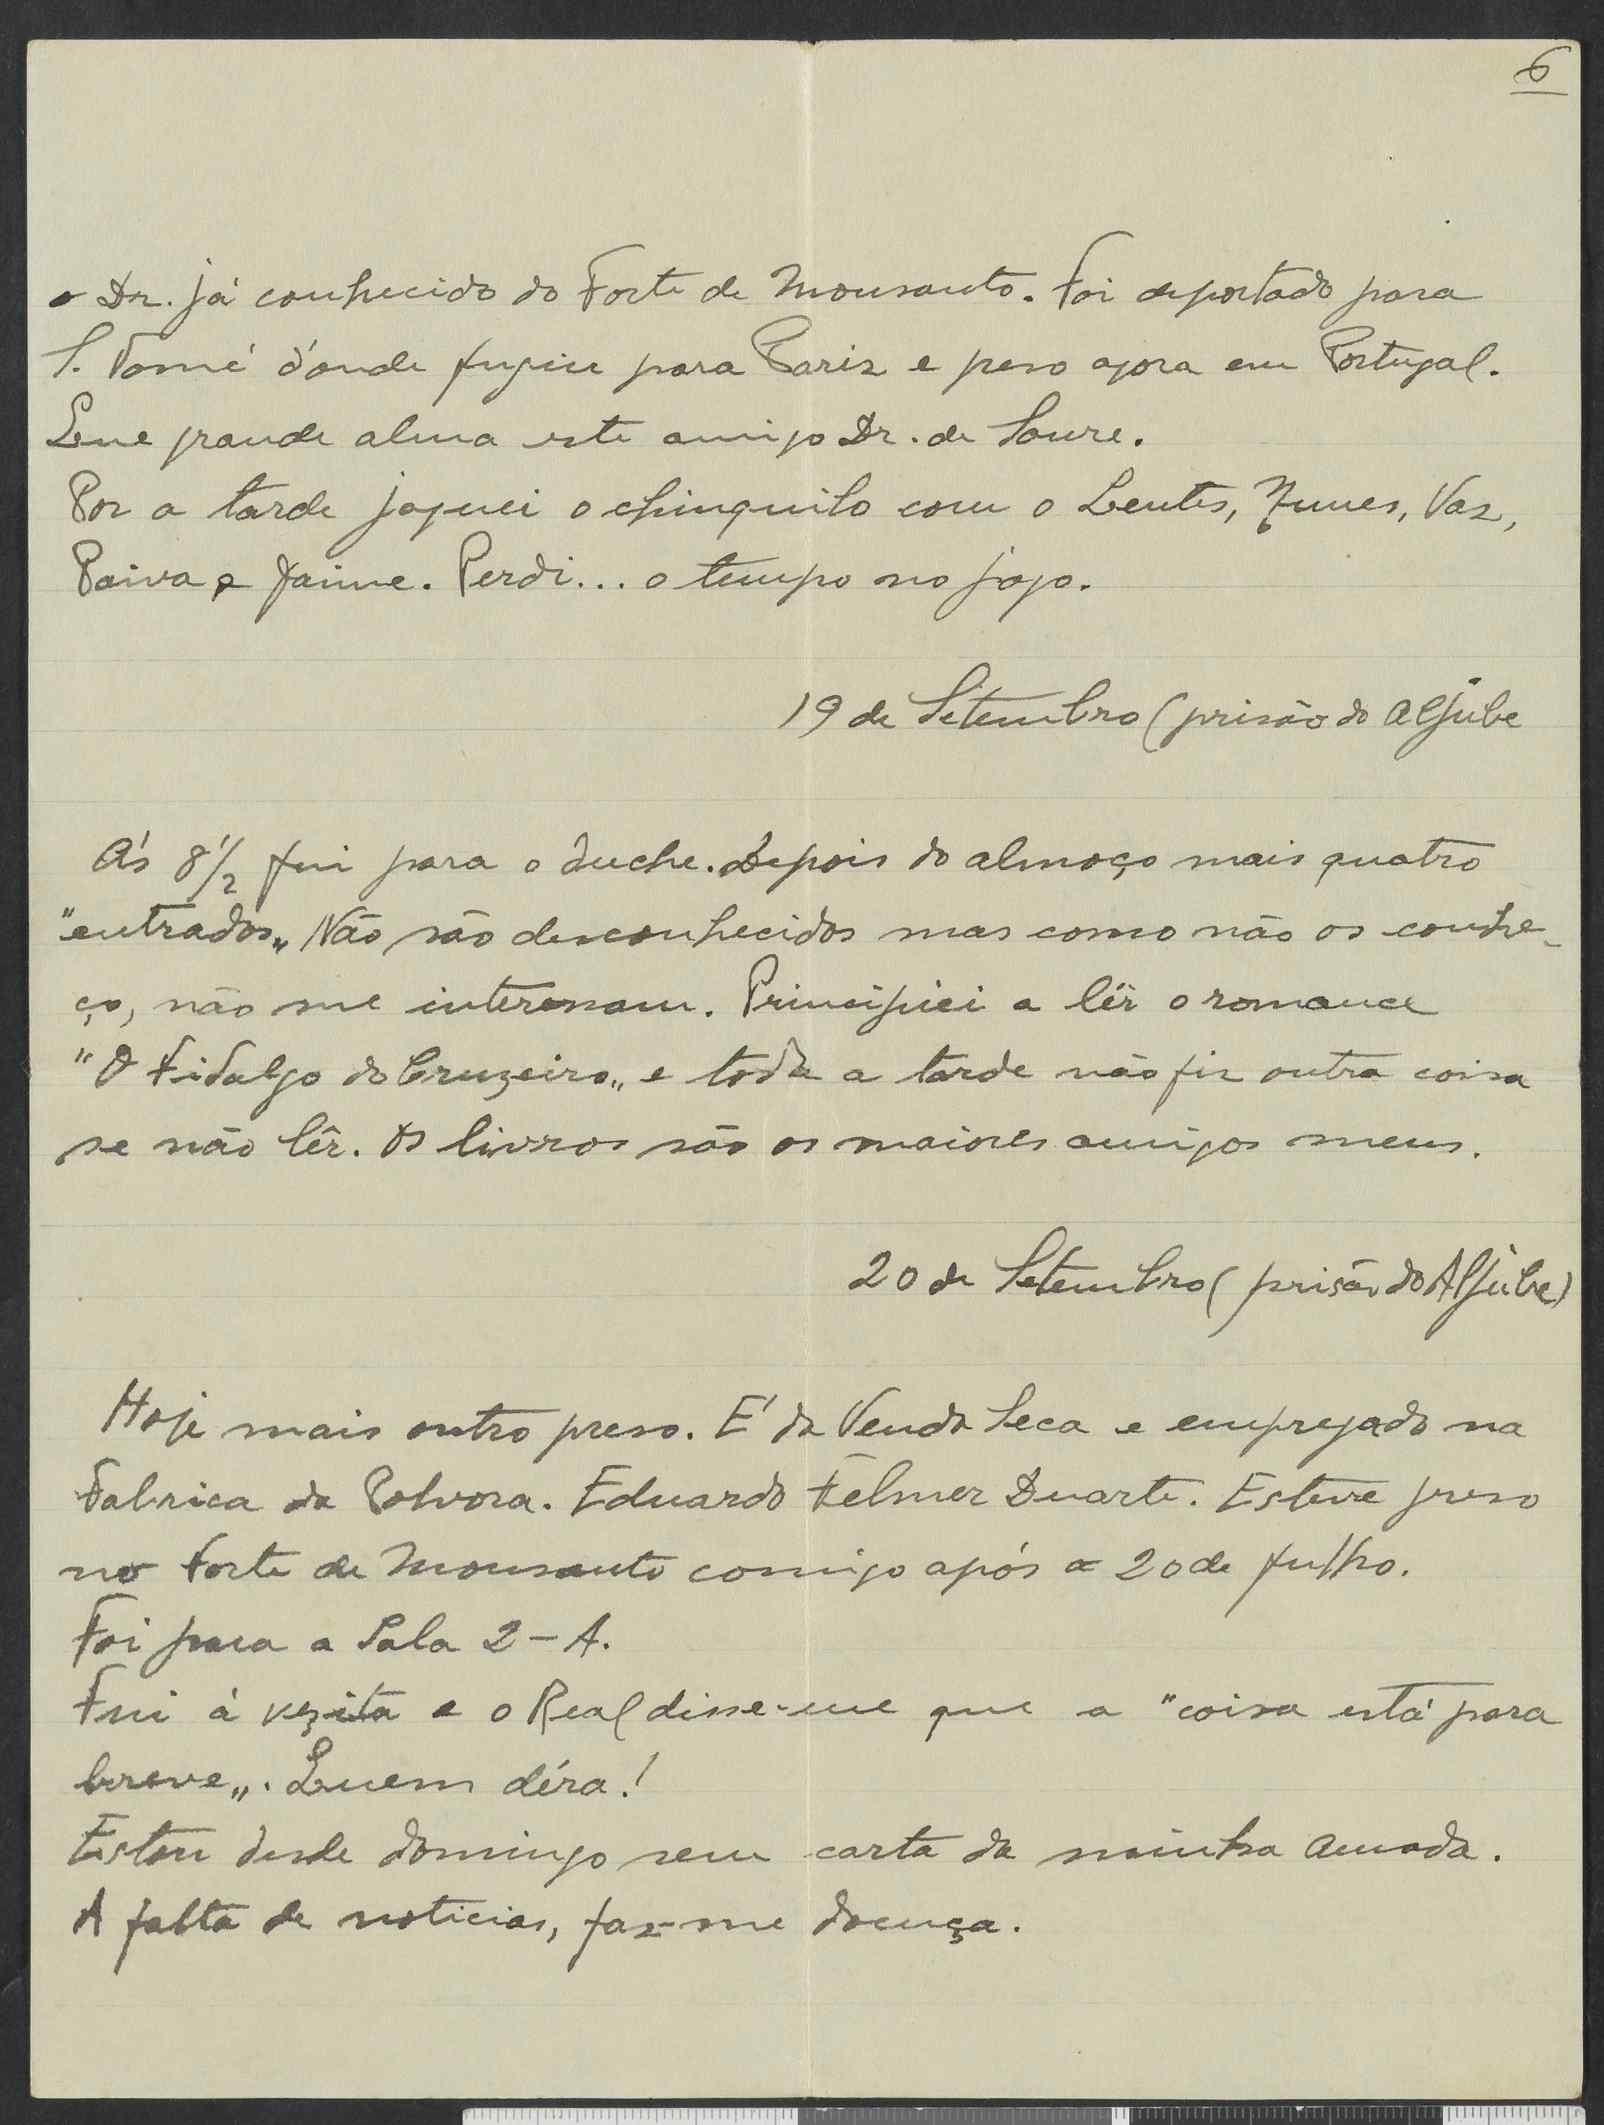 6
o Dr. já conhecido do Forte de Monsanto. Foi deportado para
S. Tomé d'onde fugiu para Pariz e preso agora em Portugal.
Que grande alma este amigo Dr. de Soure.
Por a tarde joguei o chinquilo com o Bentes, Nunes, Vaz,
Paiva e Jaime. Perdi... o tempo no jogo.
19 de Setembro (prisão do Aljube
Ás 8 1/2 fui para o duche. Depois do almoço mais quatro
"entrados„ Não são desconhecidos mas como não os conhe-
ço, não me interessam. Principiei a lêr o romance
"O Fidalgo do Cruzeiro„ e toda a tarde não fiz outra coisa
se não lêr. Os livros são os maiores amigos meus.
20 de Setembro (prisão do Aljube)
Hoje mais outro preso. E' da Venda Seca e empregado na
Fabrica da Polvora. Eduardo Felmer Duarte. Esteve preso
no Forte de Monsanto comigo após a 20 de Julho.
Foi para a Sala 2-A.
Fui á vezita e o Real disse-me que a "coisa está para
breve„. Quem déra!
Estou desde domingo sem carta da minha Amada.
A falta de noticias, faz-me doença.